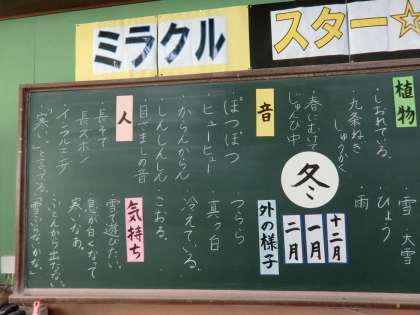 ミラクル
スター☆
植物
・しおれている。
・九条ねぎ
しゅうかく
・春にむけて
じゅんび中
音
ぽつぽつ
ヒューヒュー
からんからん
しんしんしん
人
・長そで
・長ズボン
・インフルエンザ
冬
十二月
一月
二月
外の様子
雪
大雪
ひょう
雨
つらら
真っ白
冷えている。
こおる。
気持ち
雪で遊びたい。
息が白くなって
寒いなあ。
ふとんから出たくない